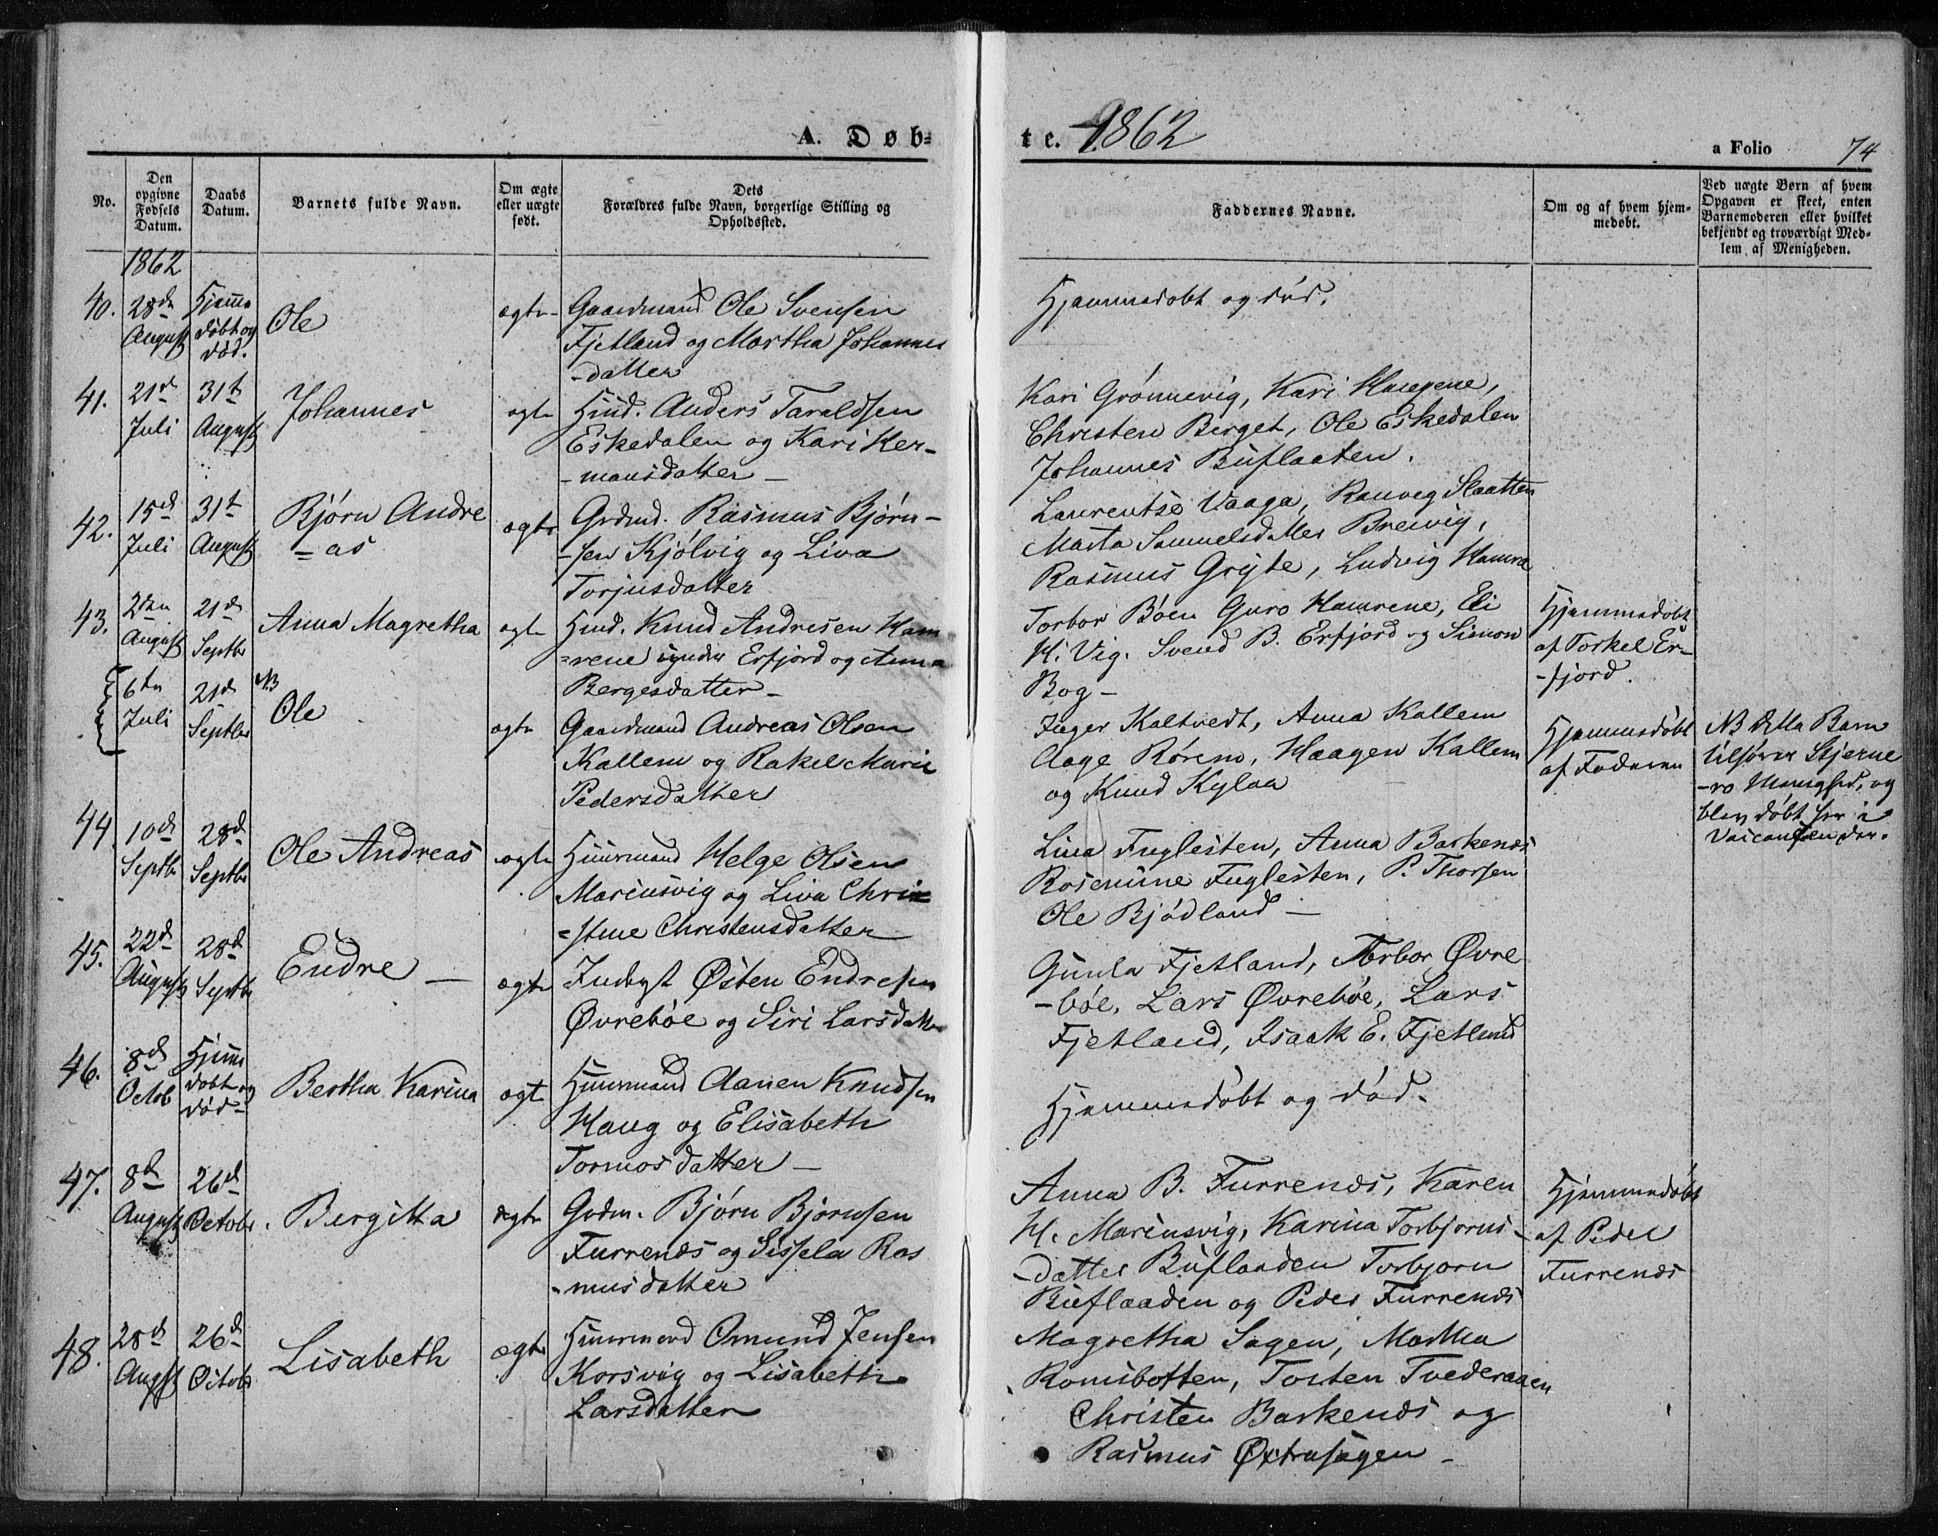 A. Døb=
te. 1862
a Folio 74
No.
Den opgivne Fødsels Datum.
Daabs Datum.
Barnets fulde Navn.
Om ægte eller uægte født.
Dets Forældres fulde Navn, borgerlige Stilling og Opholdssted.
Faddernes Navne.
Om og af hvem hjem-
medøbt.
Ved uægte Børn af hvem
Opgaven er skeet, enten
Barnemoderen eller hvilket
bekjendt og troværdigt Med-
lem af Menigheden.
1862
40.
28de
August
Hjemme
døbt og
død.
Ole
ægte
Gaardmand Ole Svensen
Fjetland og Martha Johannes
-datter
Hjemmedøbt og død.
41.
21de
Juli
31te
August
Johannes
ægte
Huusd. Anders Taraldsen
Eskedalen og Kari Her-
-mansdatter -
Kari Grønnevig, Kari Haugene,
Christen Berget, Ole Eskedalen
Johannes Buflaaten.
42.
15de
Juli
31te
August
Bjørn Andre
=as
ægte
Grdmd. Rasmus Bjørn-
-sen Kjølvig og Liva
Torjusdatter
Laurentse Vaaga, Ranveg Slaatten
Marta Samuelsdatter Breivig,
Rasmus Gryte, Ludvig Hamre
43.
2den
August
21de
Septbr
Anna Magretha
ægte
Hmd. Knud Andresen Ham
=rene under Erfjord og Anna
Bergesdatter -
Torbor Bøen Guro Hamrene, Eli
H. Vig. Svend B. Erfjord og Simon
Bog -
Hjemmedøbt
af Torkel Er-
-fjord.
6te
Juli
21de
Septbr
NB
Ole
ægte
Gaardmand Andreas Olsen
Kallem og Rakel Marie
Pedersdatter
Inger Kaltvedt, Anna Kallem
Aage Røren, Haagen Kallem
og Knud Kylaa
Hjemmedøbt
af Faderen
NB dette Barn
tilhører Stjerne
-rø Menighed, og
blev døbt her i
Vaicansen der.
44
10de
Septbr
28de
Septbr
Ole Andreas
ægte
Huusmand Helge Olsen
Mariusvig og Liva Chri
=stine Christensdatter
Lina Fuglesten, Anna Barkenæs
Rosemine Fuglesten, P. Thorsen
Ole Bjødland -
45.
22de
August
28de
Septbr
Endre -
ægte
Inderst Østen Endresen
Øvrebøe og Siri Larsdatter
Gunla Fjetland, Torbor Øvre
-bøe, Lars Øvrebøe, Lars
Fjetland, Isaak E. Fjetland
46.
8de
Octob
Hjemme
døbt og
død
Bertha Karina
ægte
Huusmand Aanen Knudsen
Haug og Elisabeth
Tormosdatter -
Hjemmedøbt og død.
47.
8de
August
26de
Octobr
Bergitta
ægte
Gdm. Bjørn Bjørnsen
Furrenæs og Sissela Ras
-musdatter
Anna B. Furrenæs, Karen
H. Mariusvig, Karina Torbjørns-
-datter Buflaaden Torbjørn
Buflaaden og Peder Furrenæs
Hjemmedøbt
af Peder
Furrenæs
48.
28de
Augst
26de
Octobr
Lisabeth
ægte
Huusmand Omund Jensen
Korsvig og Lisabeth
Larsdatter
Magretha Sagen, Martha
Romsbotten, Torsten Tvederaaen
Christen Barkenæs og
Rasmus Øxtrasagen -